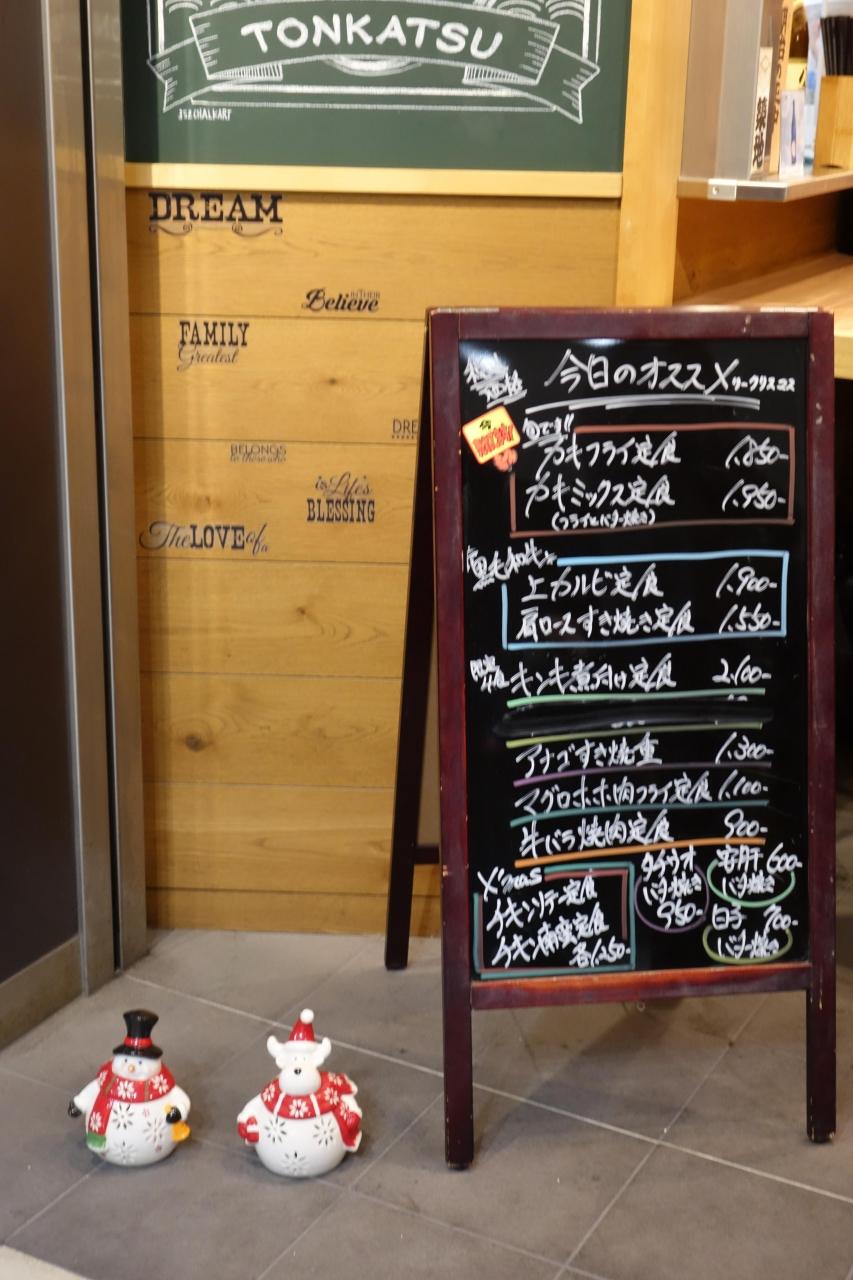 TONKATSU
J&R CHALKART
DREAM
Believe IN THEIR
FAMILY
Greatest
DRE
BELONGS
to those who
is Life's
BLESSING
The LOVE of a
今日のオススメ
旬です!!
カキフライ定食 1,850-
カキミックス定食 1,950-
(フライとバター焼き)
黒毛和牛
上カルビ定食 1,900-
肩ロースすき焼き定食 1,550-
キンキ煮付け定食 2,100-
アナゴすき焼重 1,300-
マグロホホ肉フライ定食 1,100-
牛バラ焼肉定食 900-
X'mas
チキンソテー定食
チキン南蛮定食
各1,250-
タチウオ
バター焼き
950-
安肝 600-
バター焼き
白子 700-
バター焼き